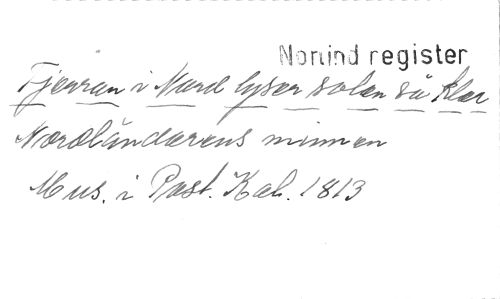 Norlind register
Fjerran i Nord lyser solen så klar
Nordländarens minnen
Mus. i Post. Kal. 1813